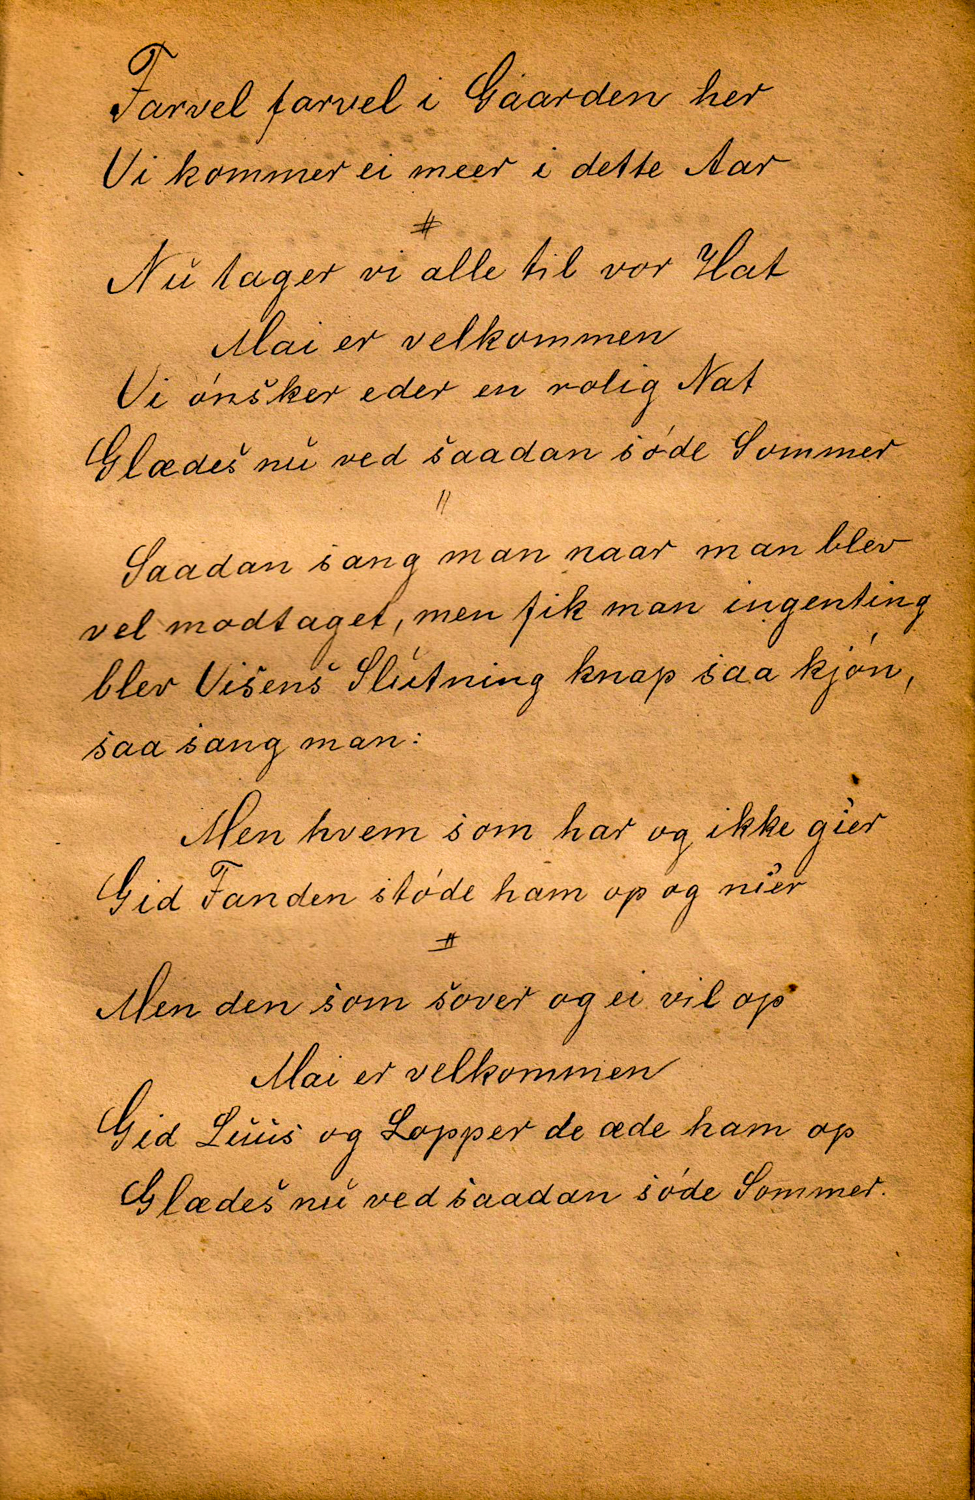 Farvel farvel i Gaarden her
Vi kommer ei meer i dette Aar
#
Nu tager vi alle til vor Hat
Mai er velkommen
Vi ónsker eder en rolig Nat
Glædes nu ved saadan sóde Sommer
"
Saadan sang man naar man blev
vel modtaget, men fik man ingenting
blev Visens Slutning knap saa kjón,
saa sang man:
Men hvem som har og ikke gier
Gid Fanden stóde ham op og nier
#
Men den som sover og ei vil op
Mai er velkommen
Gid Luus og Lopper de æde ham op
Glædes nu ved saadan sóde Sommer.